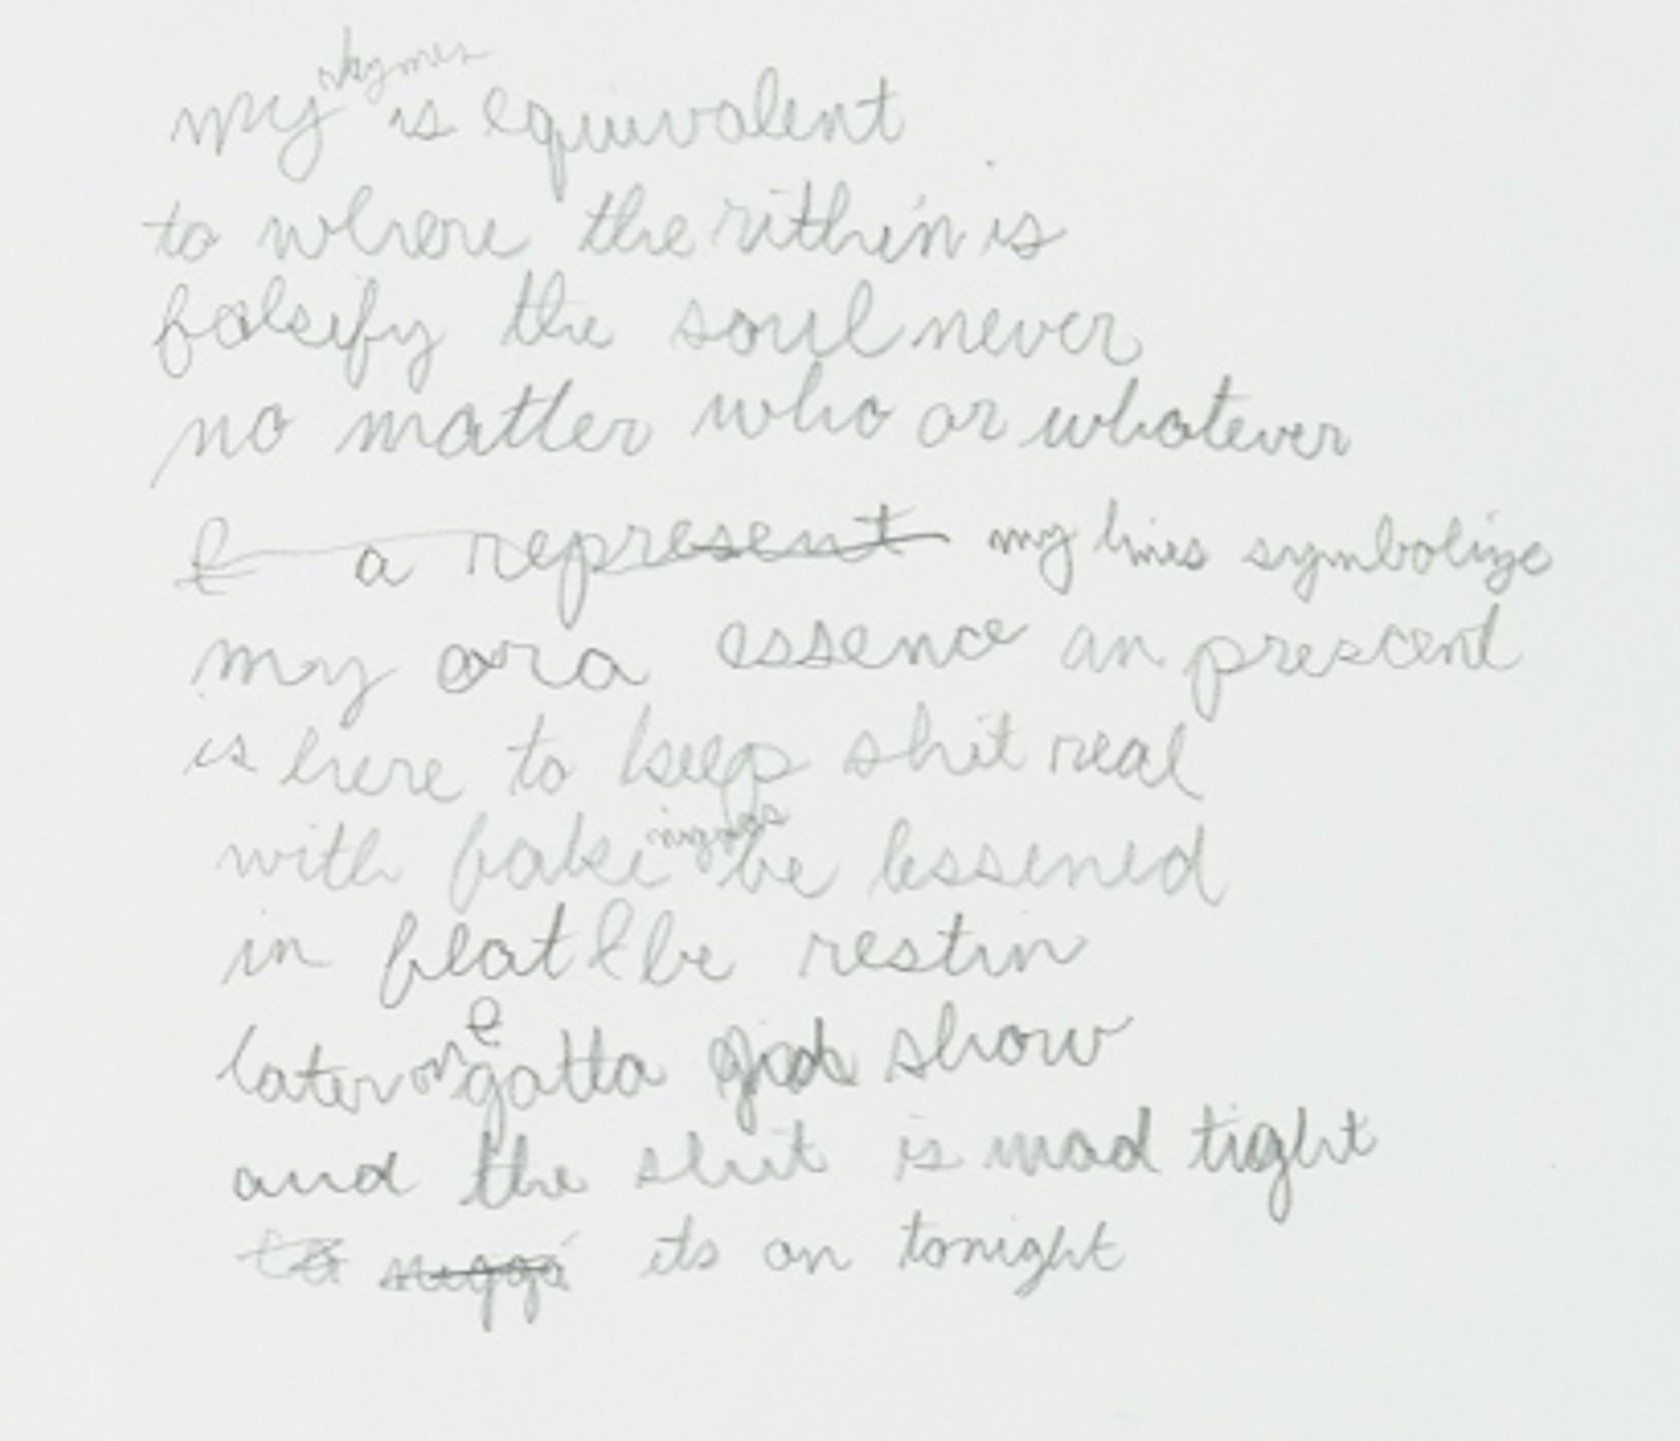 my rhymes is equivalent
to where the rithim is
falsify the soul never
no matter who or whatever
I a represent my lines symbolize
my ora essence an prescend
is here to keep shit real
with fake niggas be lessened
in flat I be restin
later on I gotta show
and the shit is mad tight
to nigga its on tonight